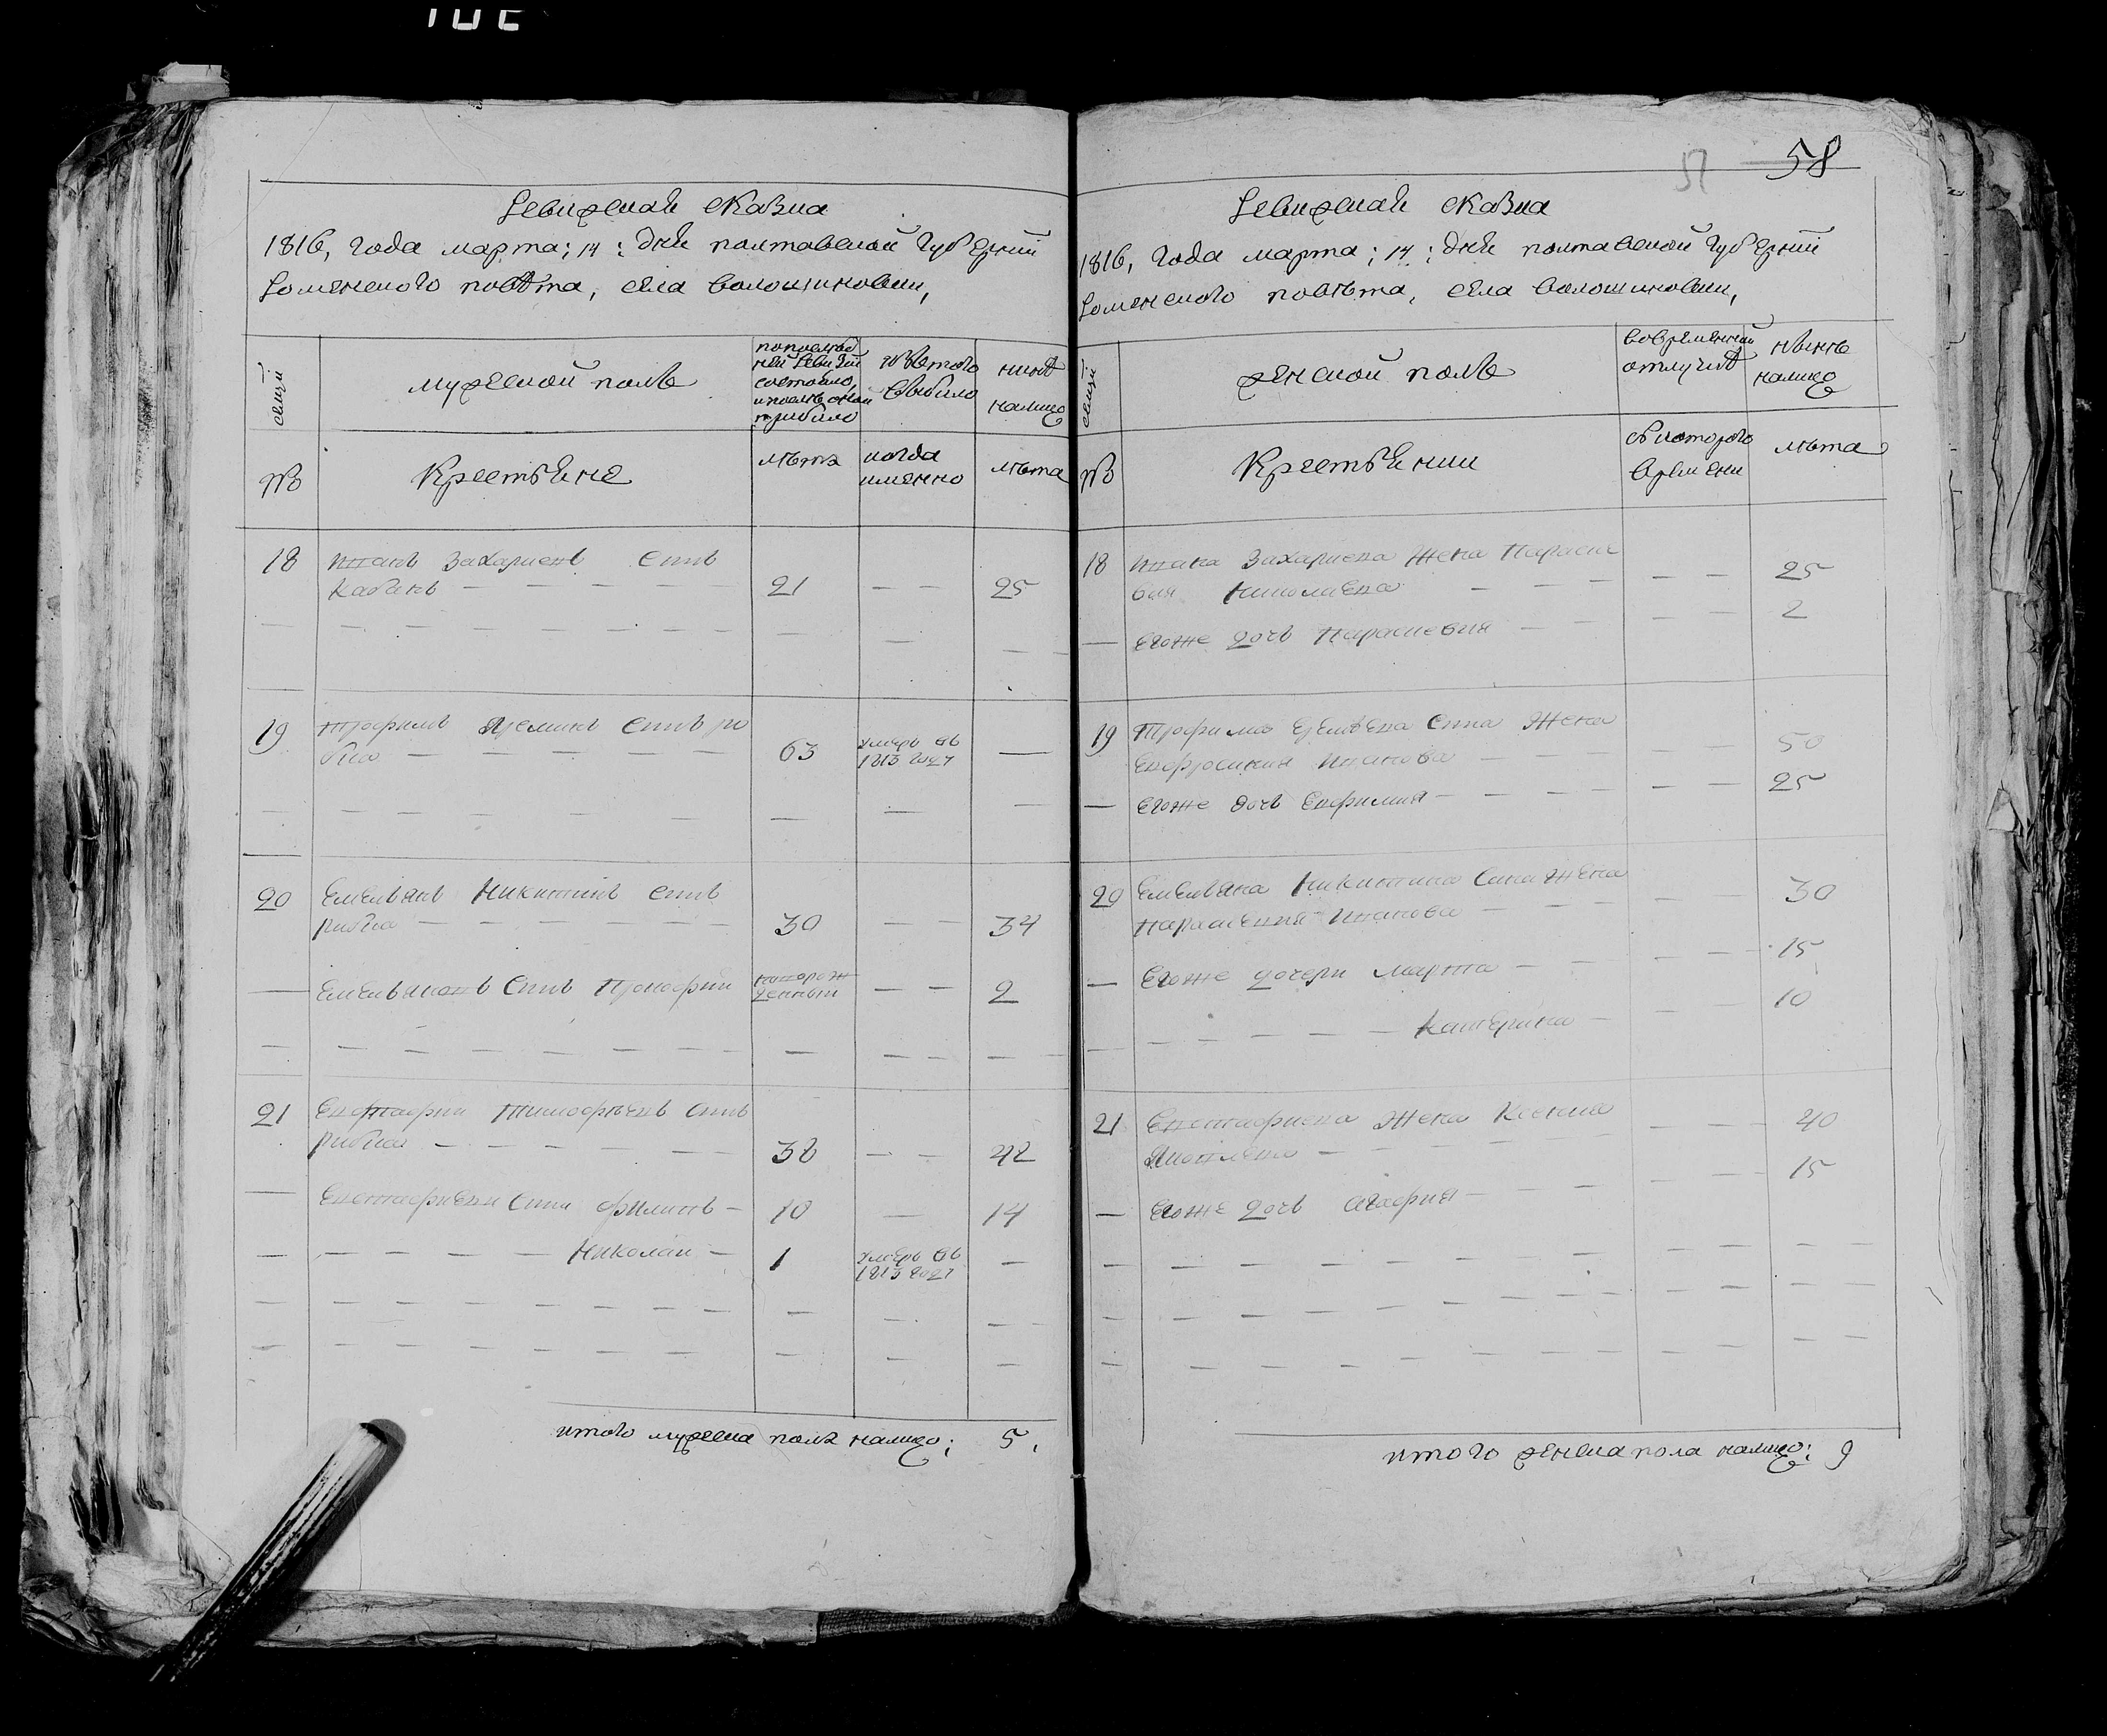 58
57
Ревизская сказка
1816, года марта; 14: дня полтавской губернии
роменского повѣта, села волошиновки,
семьи
мужеской полъ
попослѣд
ней ревизии
состояло,
и послѣ оной
прибыло
изъ того
выбыло
нынѣ
налицо
№
Крестьяне
лѣта
когда
именно
лѣта
18 Иванъ Захариевъ Синъ
Кабанъ 21 25
19 Трофимъ Яреминъ Синъ ри
бка 63 умеръ въ
1813 году
20 Емельянъ Никитинъ Синъ
рибка 30 34
Емельяновъ Синъ Прокофий новорож
денный 2
21 Евстафий Тимофѣевъ Синъ
рибка 38 42
Евстафиеви Сини Филипъ 10 14
Николай 1 умеръ въ
1813 году
итого мужеска пола налицо; 5,
Ревизская сказка
1816, года марта; 14; дня полтавской губернии
роменского повѣта, села волошиновки,
семьи
женской полъ
вовременной
отлучкѣ
нынѣ
налицо
№
Крестьянки
съ которого
времени
лѣта
18 Ивана Захариева Жена Параске
вия Николаева 25
Егоже дочь Параскевия 2
19 Трофима Еремѣева Сина Жена
Евфросиния Иванова 50
Егоже дочь Евфимия 25
20 Емельяна Никитина Сина Жена
Параскевия Иванова 30
Егоже дочери Марфа 15
Катерина 10
21 Евстафиева Жена Ксения
Яковлева 40
Егоже дочь Агафия 15
итого женска пола налицо; 9